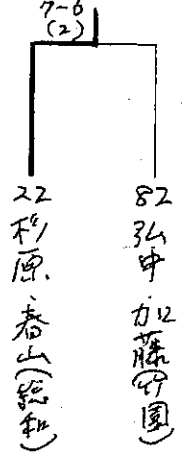 7-6
(2)
22
杉原・春山(総和)
82
弘中・加藤(竹園)